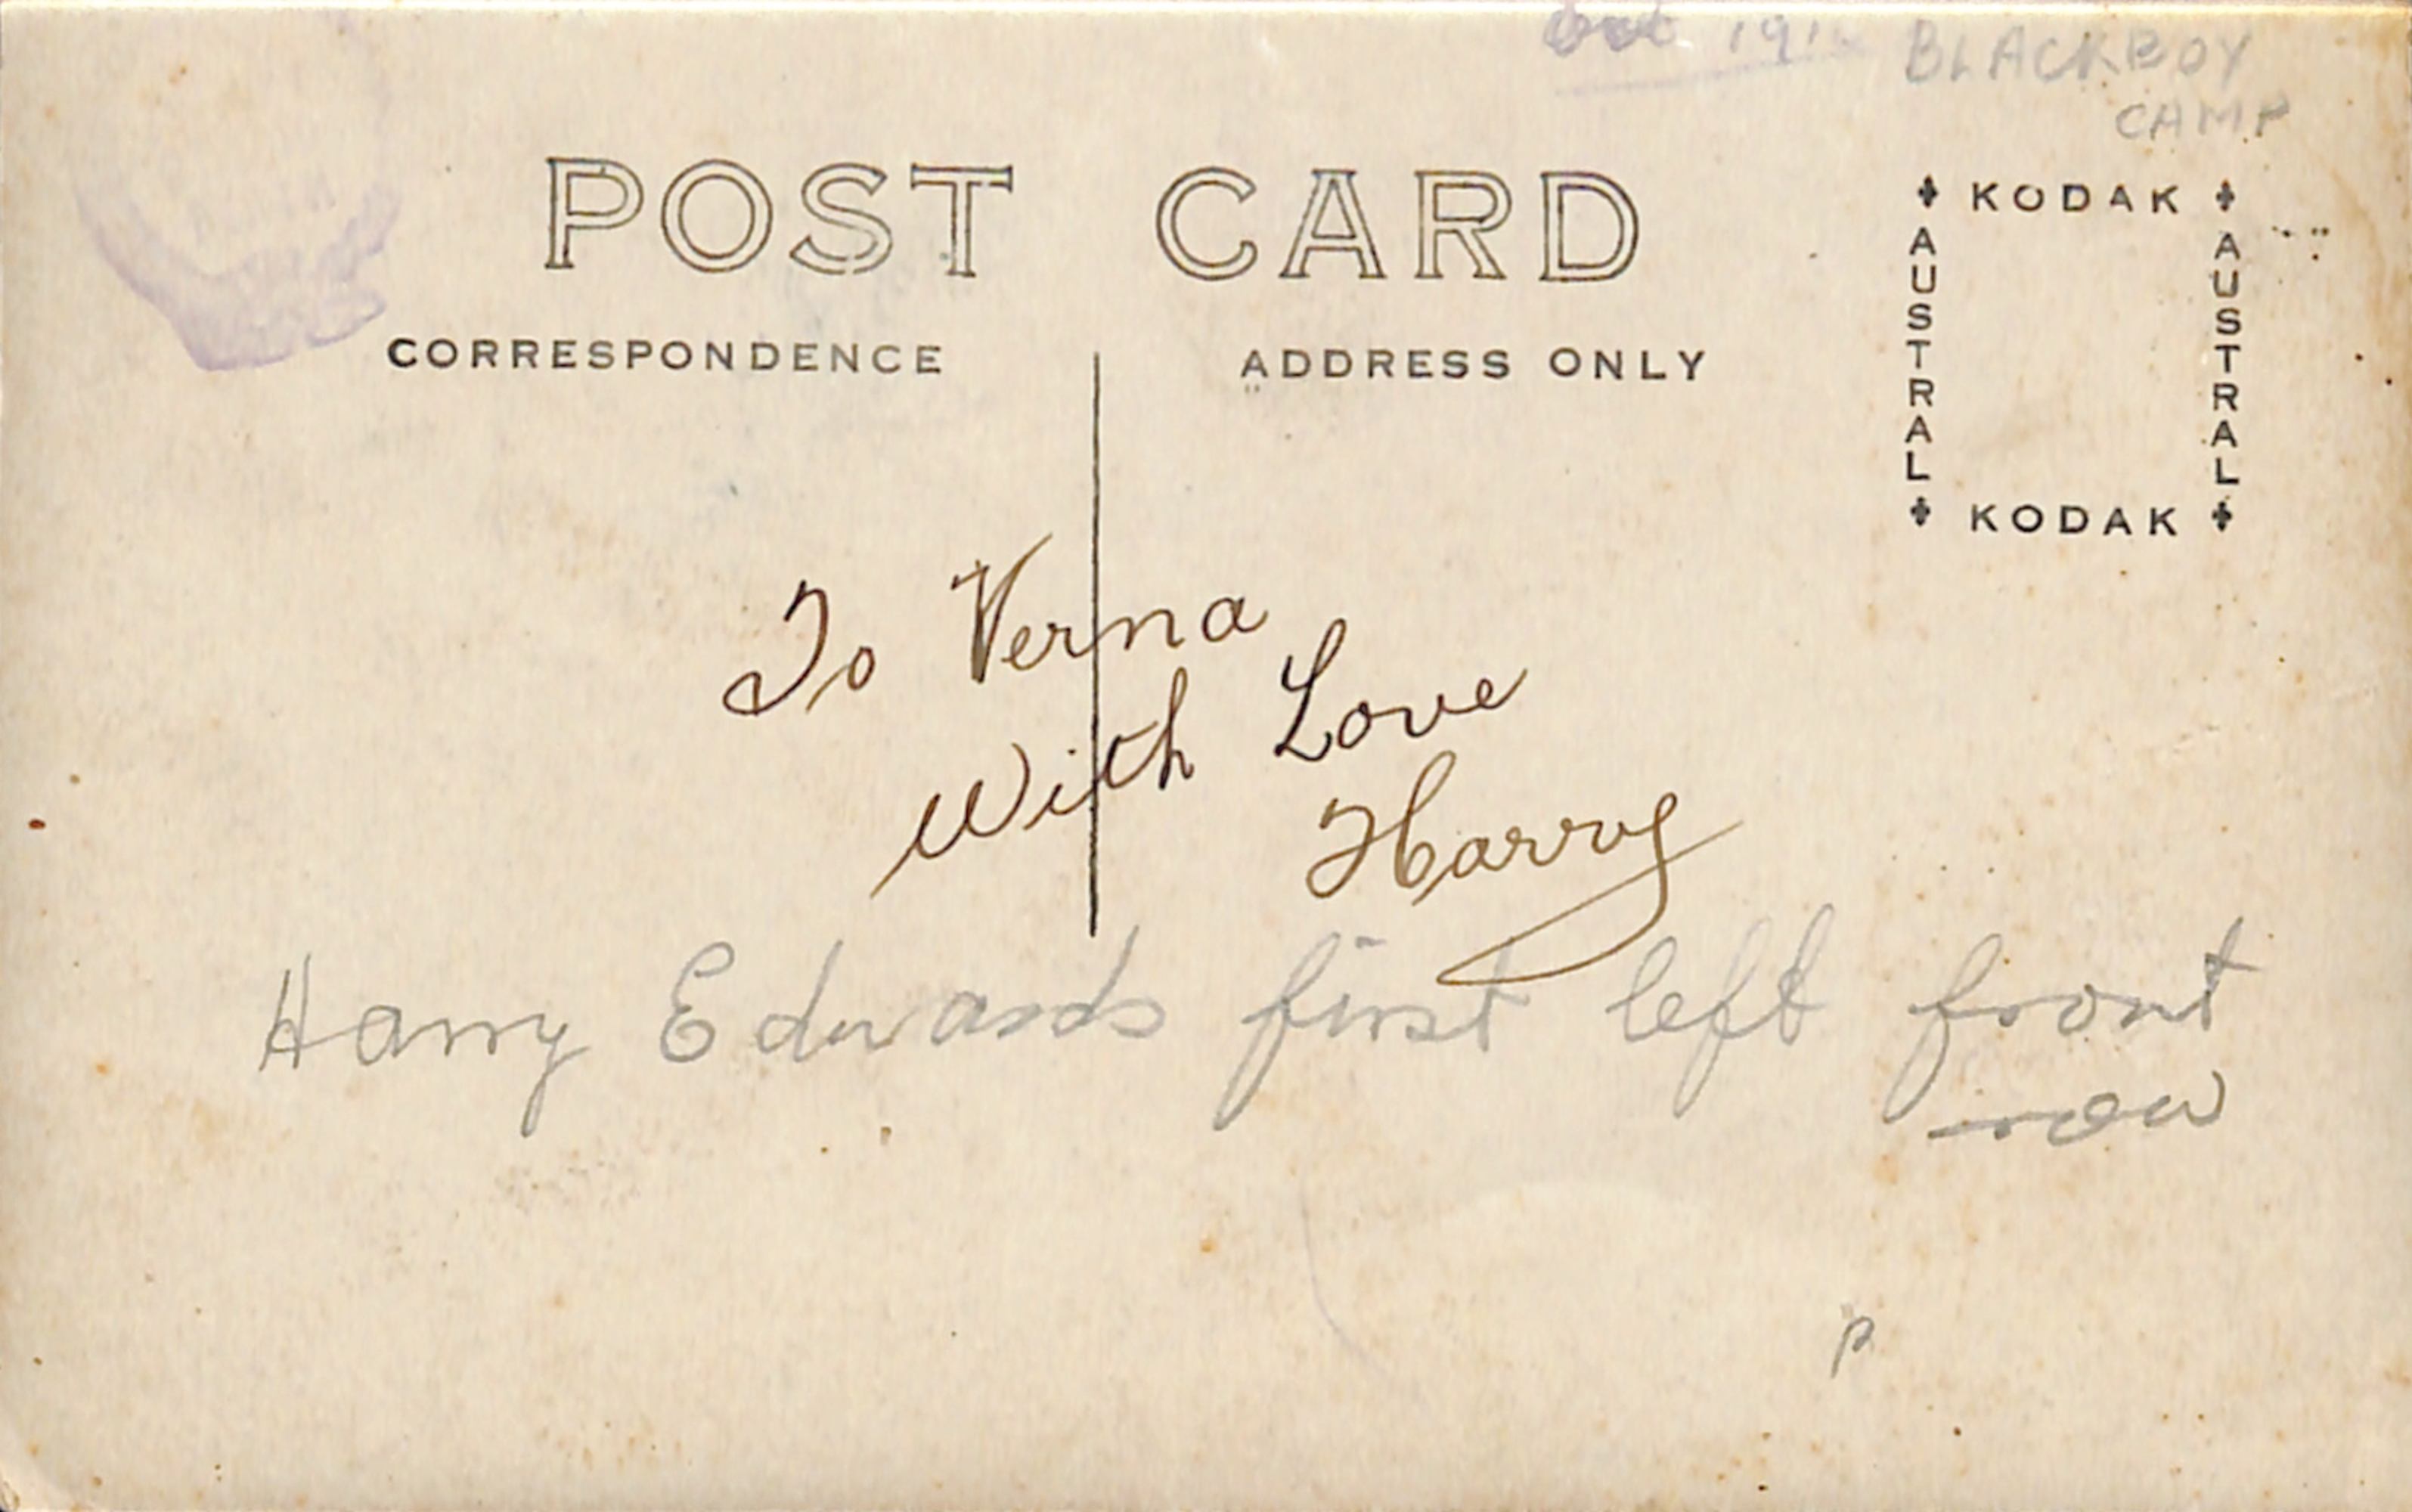 BLACKBOY
CAMP
POST CARD
KODAK
AUSTRAL
AUSTRAL
KODAK
CORRESPONDENCE
ADDRESS ONLY
To Verna
With Love
Harry
Harry Edwards first left front
row
P